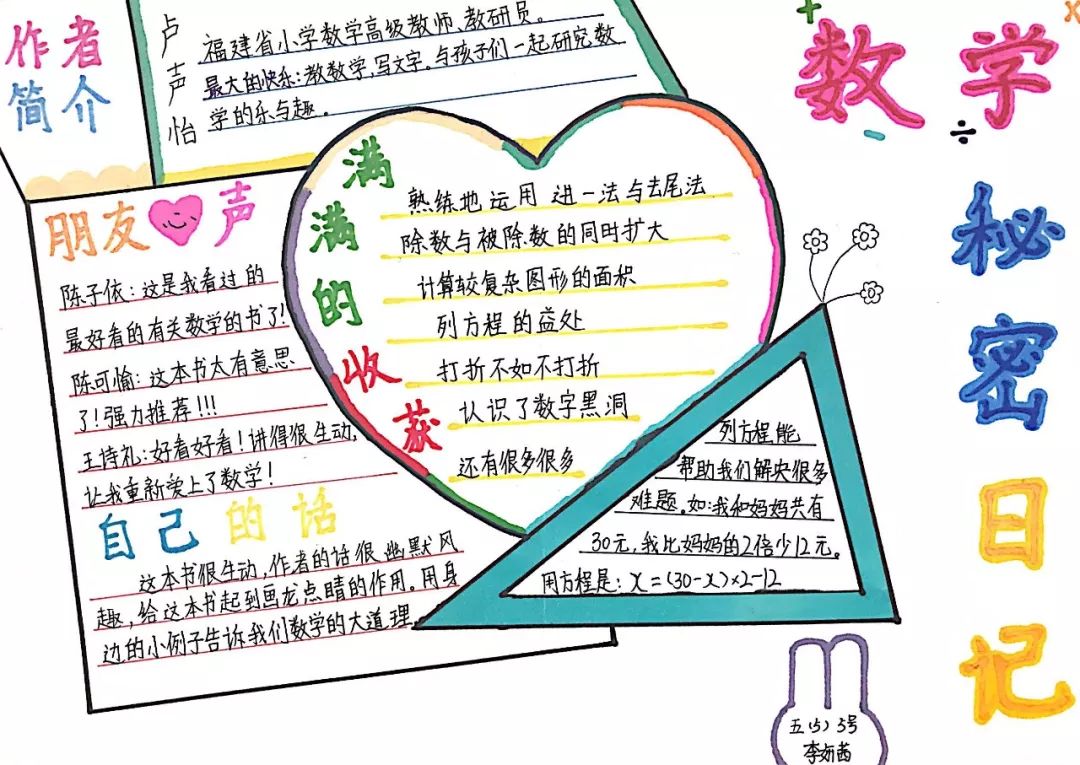 数学
秘密日记
作者
简介
卢声怡
福建省小学数学高级教师、教研员。
最大的快乐:教数学,写文字,与孩子们一起研究数
学的乐与趣。
朋友声
陈子依:这是我看过的
最好看的有关数学的书了!
陈可愉:这本书太有意思
了!强力推荐!!!
王诗礼:好看好看!讲得很生动,
让我重新爱上了数学!
自己的话
这本书很生动,作者的话很幽默风
趣,给这本书起到画龙点睛的作用。用身
边的小例子告诉我们数学的大道理
满满的收获
熟练地运用 进一法与去尾法
除数与被除数的同时扩大
计算较复杂图形的面积
列方程的益处
打折不如不打折
认识了数字黑洞
还有很多很多
列方程能
帮助我们解决很多
难题。如:我和妈妈共有
30元,我比妈妈的2倍少12元。
用方程是:x=(30-x)×2-12
五(5)5号
李妍茜